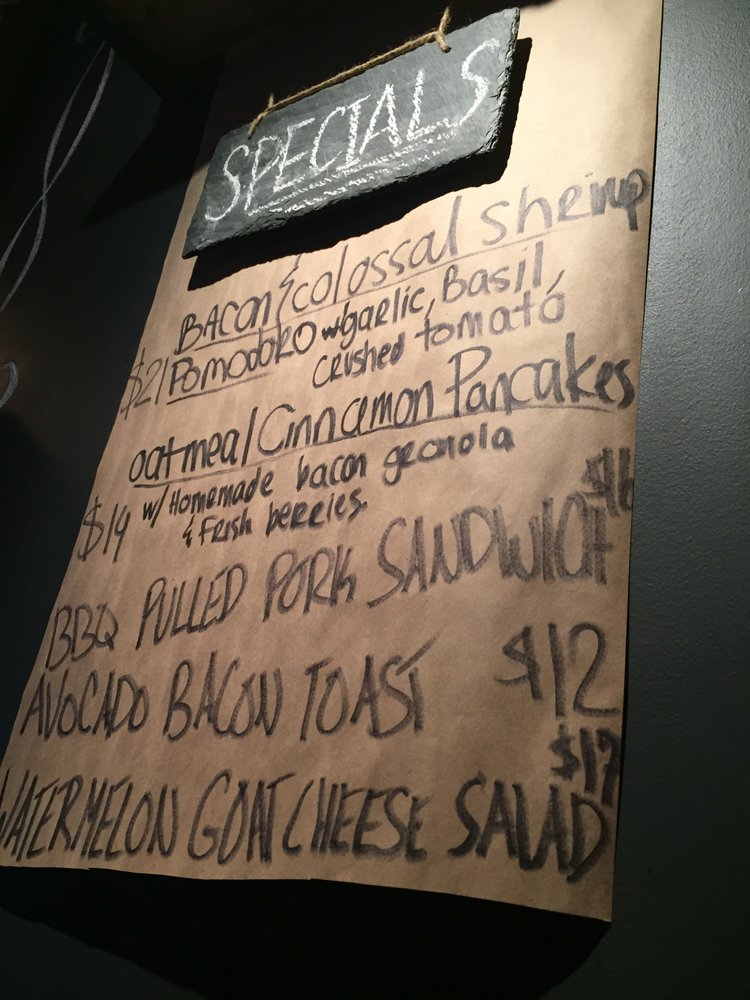 SPECIALS
BACON & colossal Shrimp
$21 Pomodoro w/garlic, Basil,
crushed tomato
oatmeal Cinnamon Pancakes
w/ Homemade bacon granola
$19 & Fresh berries.
$16
BBQ PULLED PORK SANDWICH
AVOCADO BACON TOAST $12
$17
WATERMELON GOAT CHEESE SALAD